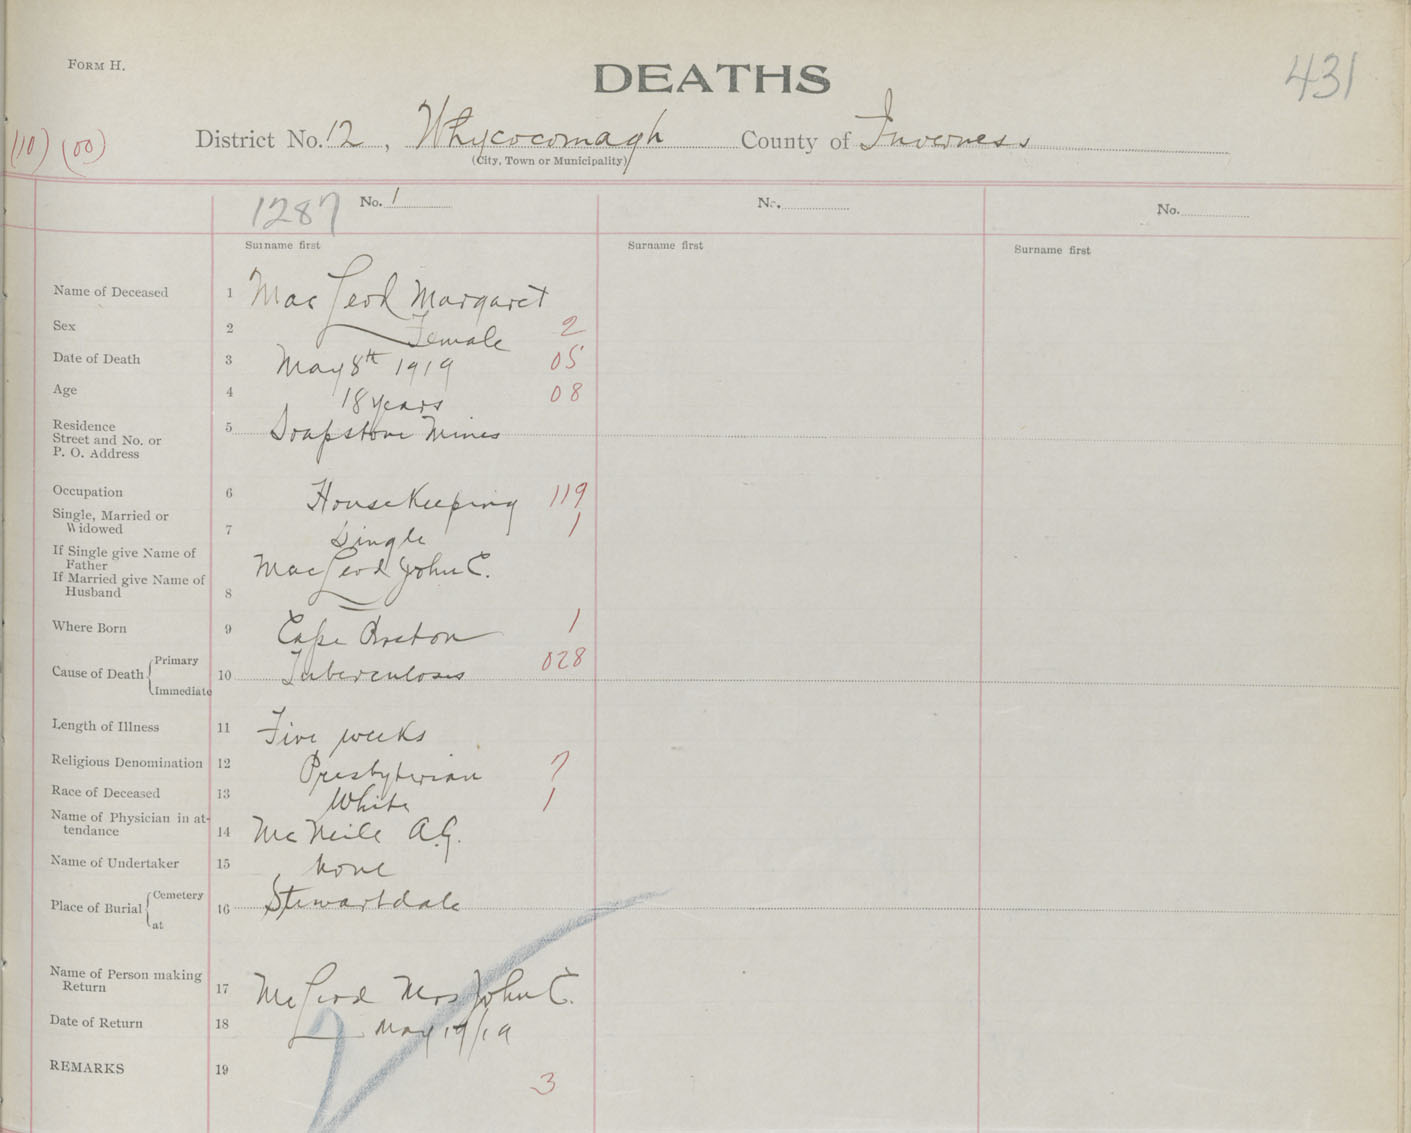 FORM H.
DEATHS
431
(10) (00)
District No. 12, Whycocomagh County of Inverness
(City, Town or Municipality)
1287 No. 1 No. No.
Surname first Surname first Surname first
Name of Deceased 1 MacLeod Margaret
Sex 2 Female 2
Date of Death 3 May 8th 1919 05
Age 4 18 years 08
Residence
Street and No. or
P. O. Address
5 Soapstone Mines
Occupation 6 HouseKeeping 119
Single, Married or
Widowed 7 Single 1
If Single give Name of
Father
If Married give Name of
Husband 8 MacLeod John C.
Where Born 9 Cape Breton 1
Cause of Death { Primary
Immediate
10 Tuberculosis 028
Length of Illness 11 Five weeks
Religious Denomination 12 Presbyterian 7
Race of Deceased 13 White 1
Name of Physician in at-
tendance 14 McNeill A.G.
Name of Undertaker 15 None
Place of Burial { Cemetery
at
16 Stewartdale
Name of Person making
Return 17 McLeod Mrs John C.
Date of Return 18 May 19/19
REMARKS 19
3